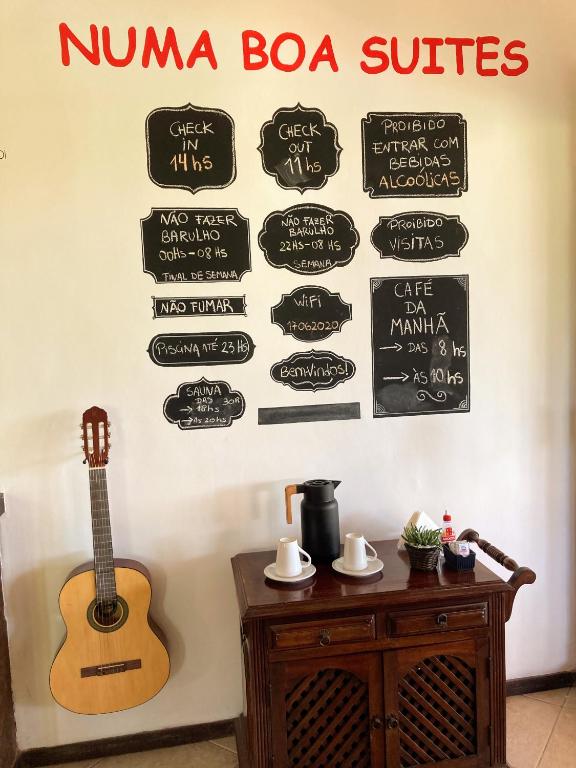 NUMA BOA SUITES
CHECK
IN
14hs
CHECK
OUT
11hs
PROIBIDO
ENTRAR COM
BEBIDAS
ALCOÓLICAS
NÃO FAZER
BARULHO
00HS-08HS
FINAL DE SEMANA
NÃO FAZER
BARULHO
22HS-08HS
SEMANA
PROIBIDO
VISITAS
NÃO FUMAR
WiFi
17062020
CAFÉ
DA
MANHÃ
→ DAS 8hs
→ ÀS 10hs
PISCINA ATÉ 23HS
BEM-VINDOS!
SAUNA
DAS
→ 18hs
→ ÀS 20hs